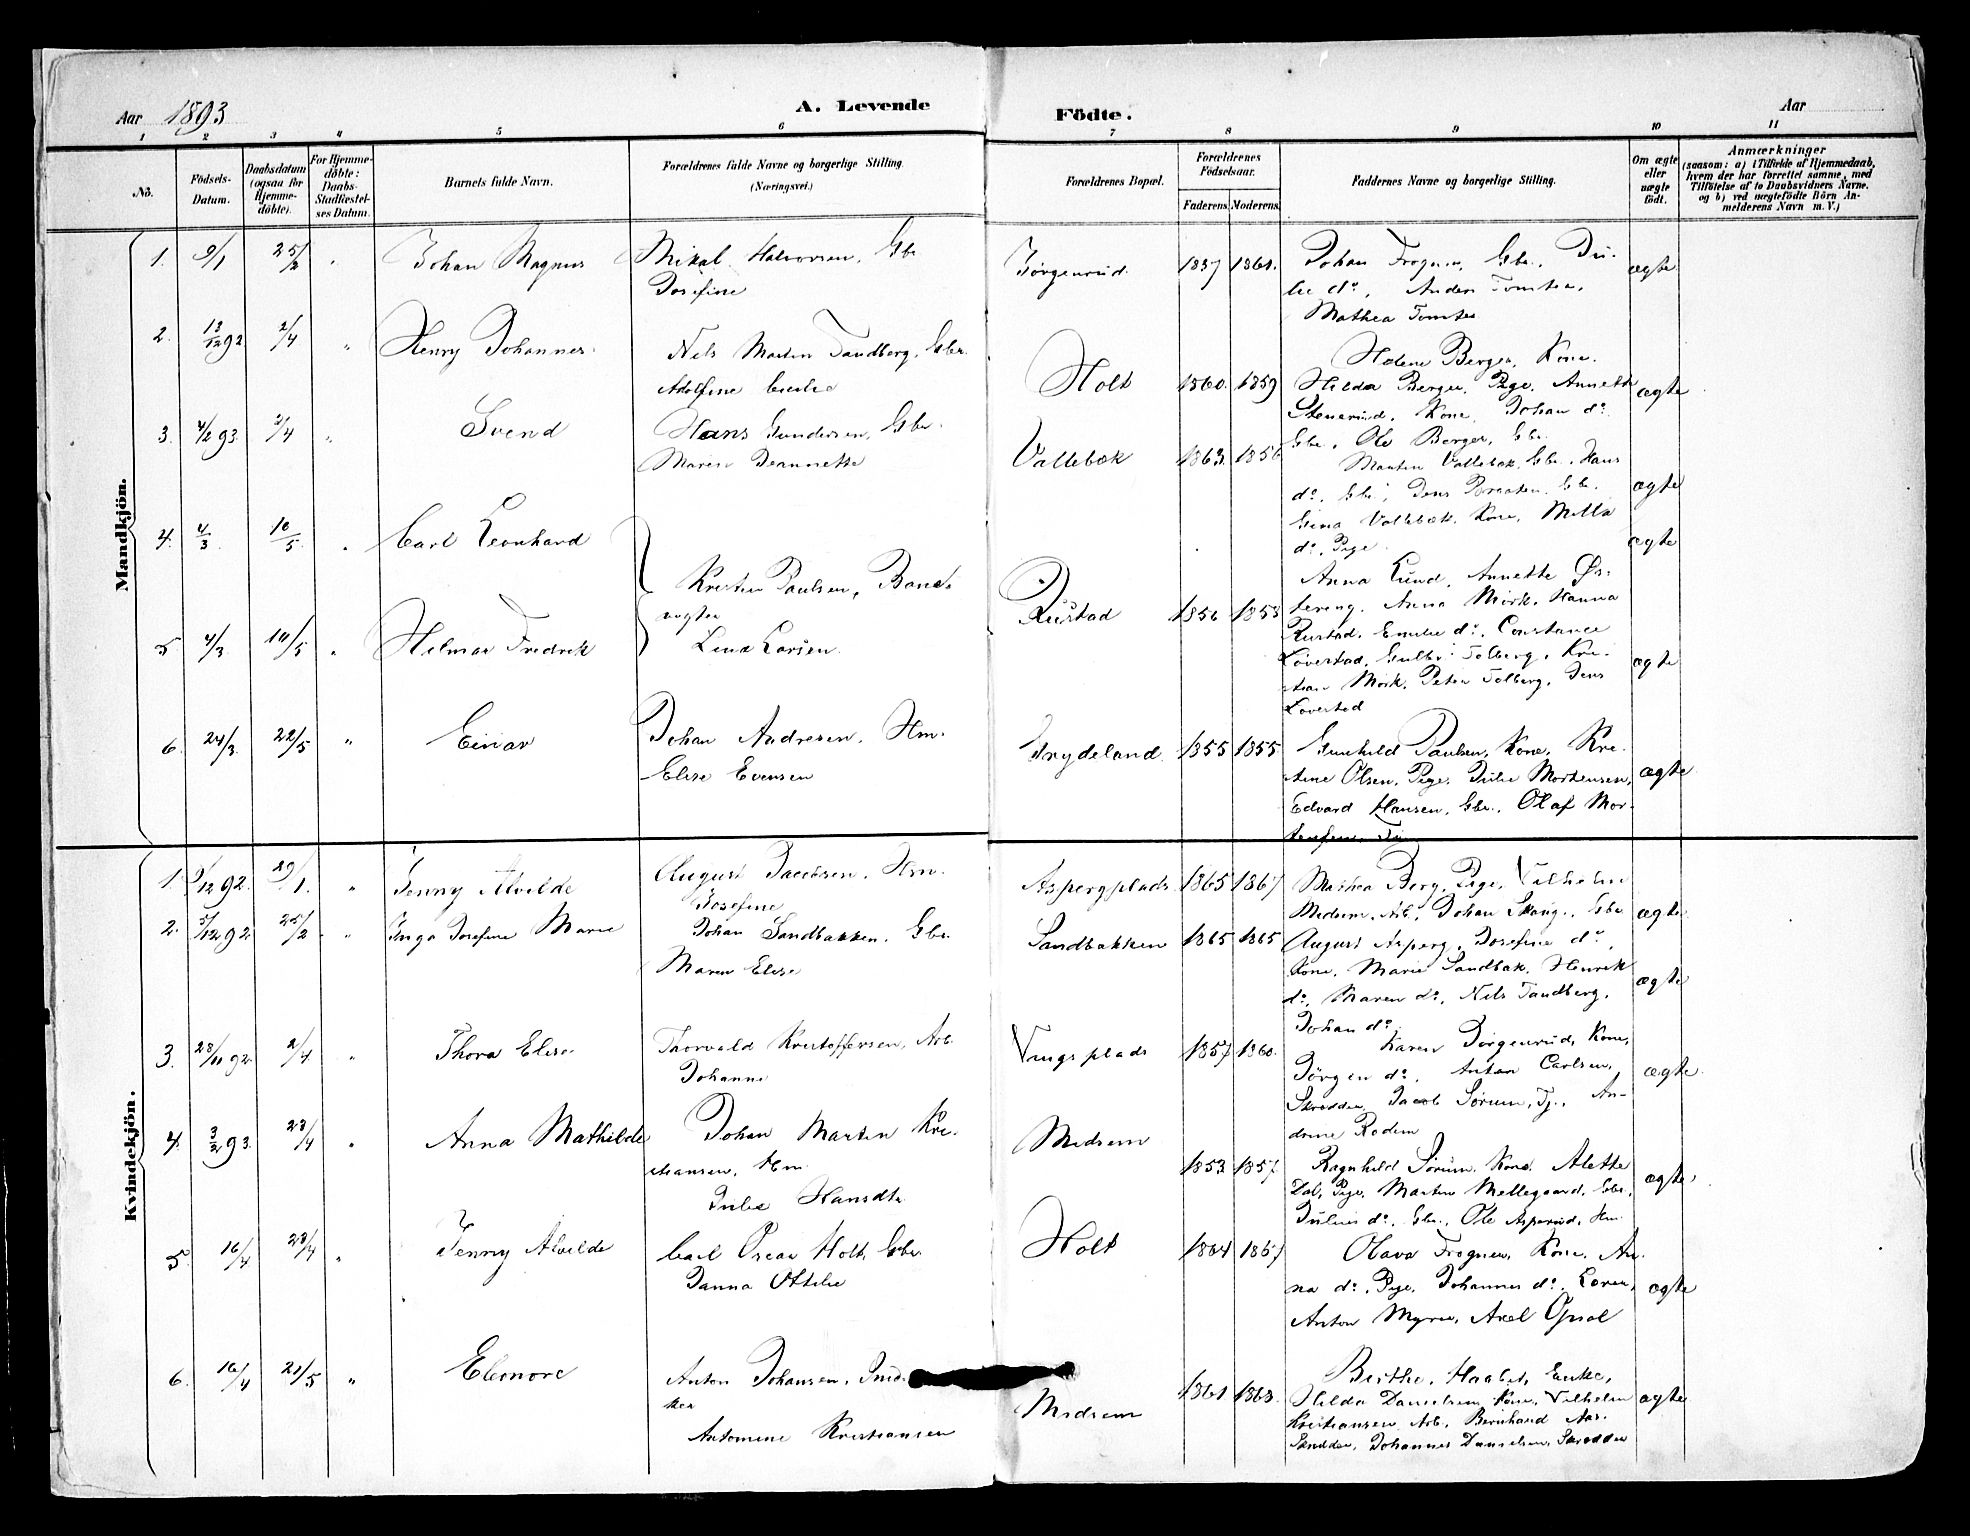 Aar 1893
A. Levende
Födte.
Aar
1 2 3 4 5 6 7 8 9 10 11
No.
Födsels-Datum.
Daabsdatum (ogsaa for Hjemme-döbte).
For Hjemme-döbte: Daabs-Stadfæstel-ses Datum.
Barnets fulde Navn.
Forældrenes fulde Navne og borgerlige Stilling.
(Næringsvei.)
Forældrenes Bopæl.
Forældrenes Födselsaar.
Faderens Moderens
Faddernes Navne og borgerlige Stilling.
Om ægte eller uægte födt.
Anmærkninger
(saasom: a) i Tilfælde af Hjemmedaab,
hvem der har forrettet samme, med
Tilföielse af to Daabsvidners Navne.
og b) ved uægtefödte Börn An-
melderens Navn m. V.)
Mandkjön.
1. 9/1 25/2 " Johan Magnus
Mikal Halvorsen, Gbr
Josefine
Jörgenrud. 1857 1860.
Johan Frogner, Gbr., Ju-
lie do, Anders Tomter,
Mathea Tomter
ægte
2. 13/12 92 2/4 " Henry Johannes.
Nils Martin Tandberg, Gbr.
Adolfine
Holt 1860. 1859
Helene Berger, Kone.
Hilda Berger, Pige, Annette
Stenerud, Kone, Johan do
Gbr., Ole Berger, Gbr.
ægte
3. 4/2 93. 2/4 " Svend
Hans Gundersen, Gbr.
Maren Jeannette
Vallebæk 1863. 1856
Martin Vallebæk, Gbr., Hans
do, Gbr., Jens Braaten, Gbr.
Gina Vallebæk, Kone, Milla
do, Pige.
ægte
4. 4/3. 10/5 " Carl Leonhard
Kristen Paulsen, Bane-
vogter
Lena Larsen.
Rustad 1856 1853
Anna Lund, Annette Øs-
tereng, Anna Mörk, Hanna
Rustad, Emilie do, Constance
Löverstad, Gulbr. Tolberg, Kri-
stian Mörk, Peter Tolberg, Jens
Löverstad
ægte
5 4/3. 10/5 " Helmar Fredrik
ægte
6. 24/3. 22/5 " Einar
Johan Andresen, Hm.
Elise Evensen
Frydeland. 1855 1855
Gunhild Paulsen, Kone, Kri-
stine Olsen, Pige, Julie Mortensen,
Edvard Hansen, Gbr., Olaf Mor-
tensen, Tj.
ægte
Kvindekjön.
1. /12 92. 29/1. " Jenny Alvilde
August Jacobsen, Hm.
Josefine
Aspergplads 1865 1867
Mathea Berg, Pige, Vilhelm
Midsem, Arb., Johan Skaug, Gbr
ægte
2. 5/12 92. 25/2 " Inga Josefine Marie
Johan Sandbakken, Gbr.
Maren Elise
Sandbakken 1865 1865
August Asperg, Josefine do,
Kone, Marie Sandbak, Henrik
do, Maren do, Nils Tandberg,
Johan do.
ægte
3. 28/11 92. 2/4. " Thora Elise
Thorvald Kristoffersen, Arb.
Johanne
Vangsplads 1857 1860.
Karen Jörgenrud, Kone,
Jörgen do, Anton Carlsen,
Skrædder, Jacob Sörum, Tj., An-
drine Rodem
ægte.
4. 3/2 93. 23/4 " Anna Mathilde
Johan Martin Kri-
stiansen, Hm.
Julie Hansdtr
Midsem 1853 1857.
Ragnhild Sörum, Kone, Alette
Dal, Pige, Martin Mellegaard, Gbr.,
Julius do, Gbr., Ole Asperud, Hm.
ægte.
5. 16/4 23/4 " Jenny Alvilde
Carl Oscar Holt, Gbr.
Janna Ottilie
Holt 1864 1867
Olava Frogner, Kone, An-
na do, Pige, Johannes do,
Anton Myrer, Axel Opsal
ægte
6. 16/4 21/5 " Eleonore
Anton Johansen,
Antomine Kristiansen
Midsem 1861 1863.
Berthe Haabet, Enke,
Hilda Danielsen, Kone, Vilhelm
Kristiansen, Arb., Bernhard Aas,
Skrædder, Johannes Danielsen, Skrædder
ægte